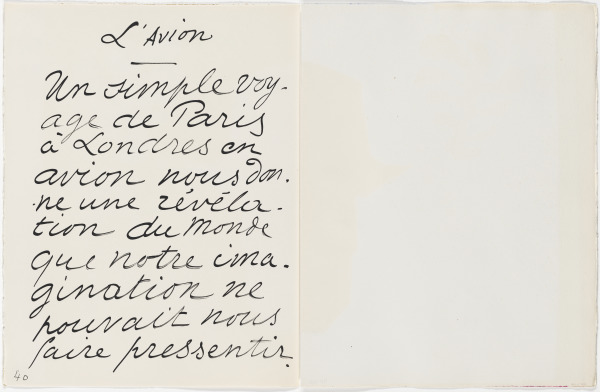 L'Avion
Un simple voy-
age de Paris
à Londres en
avion nous don-
ne une révéla-
tion du Monde
que notre ima-
gination ne
pouvait nous
faire pressentir.
40